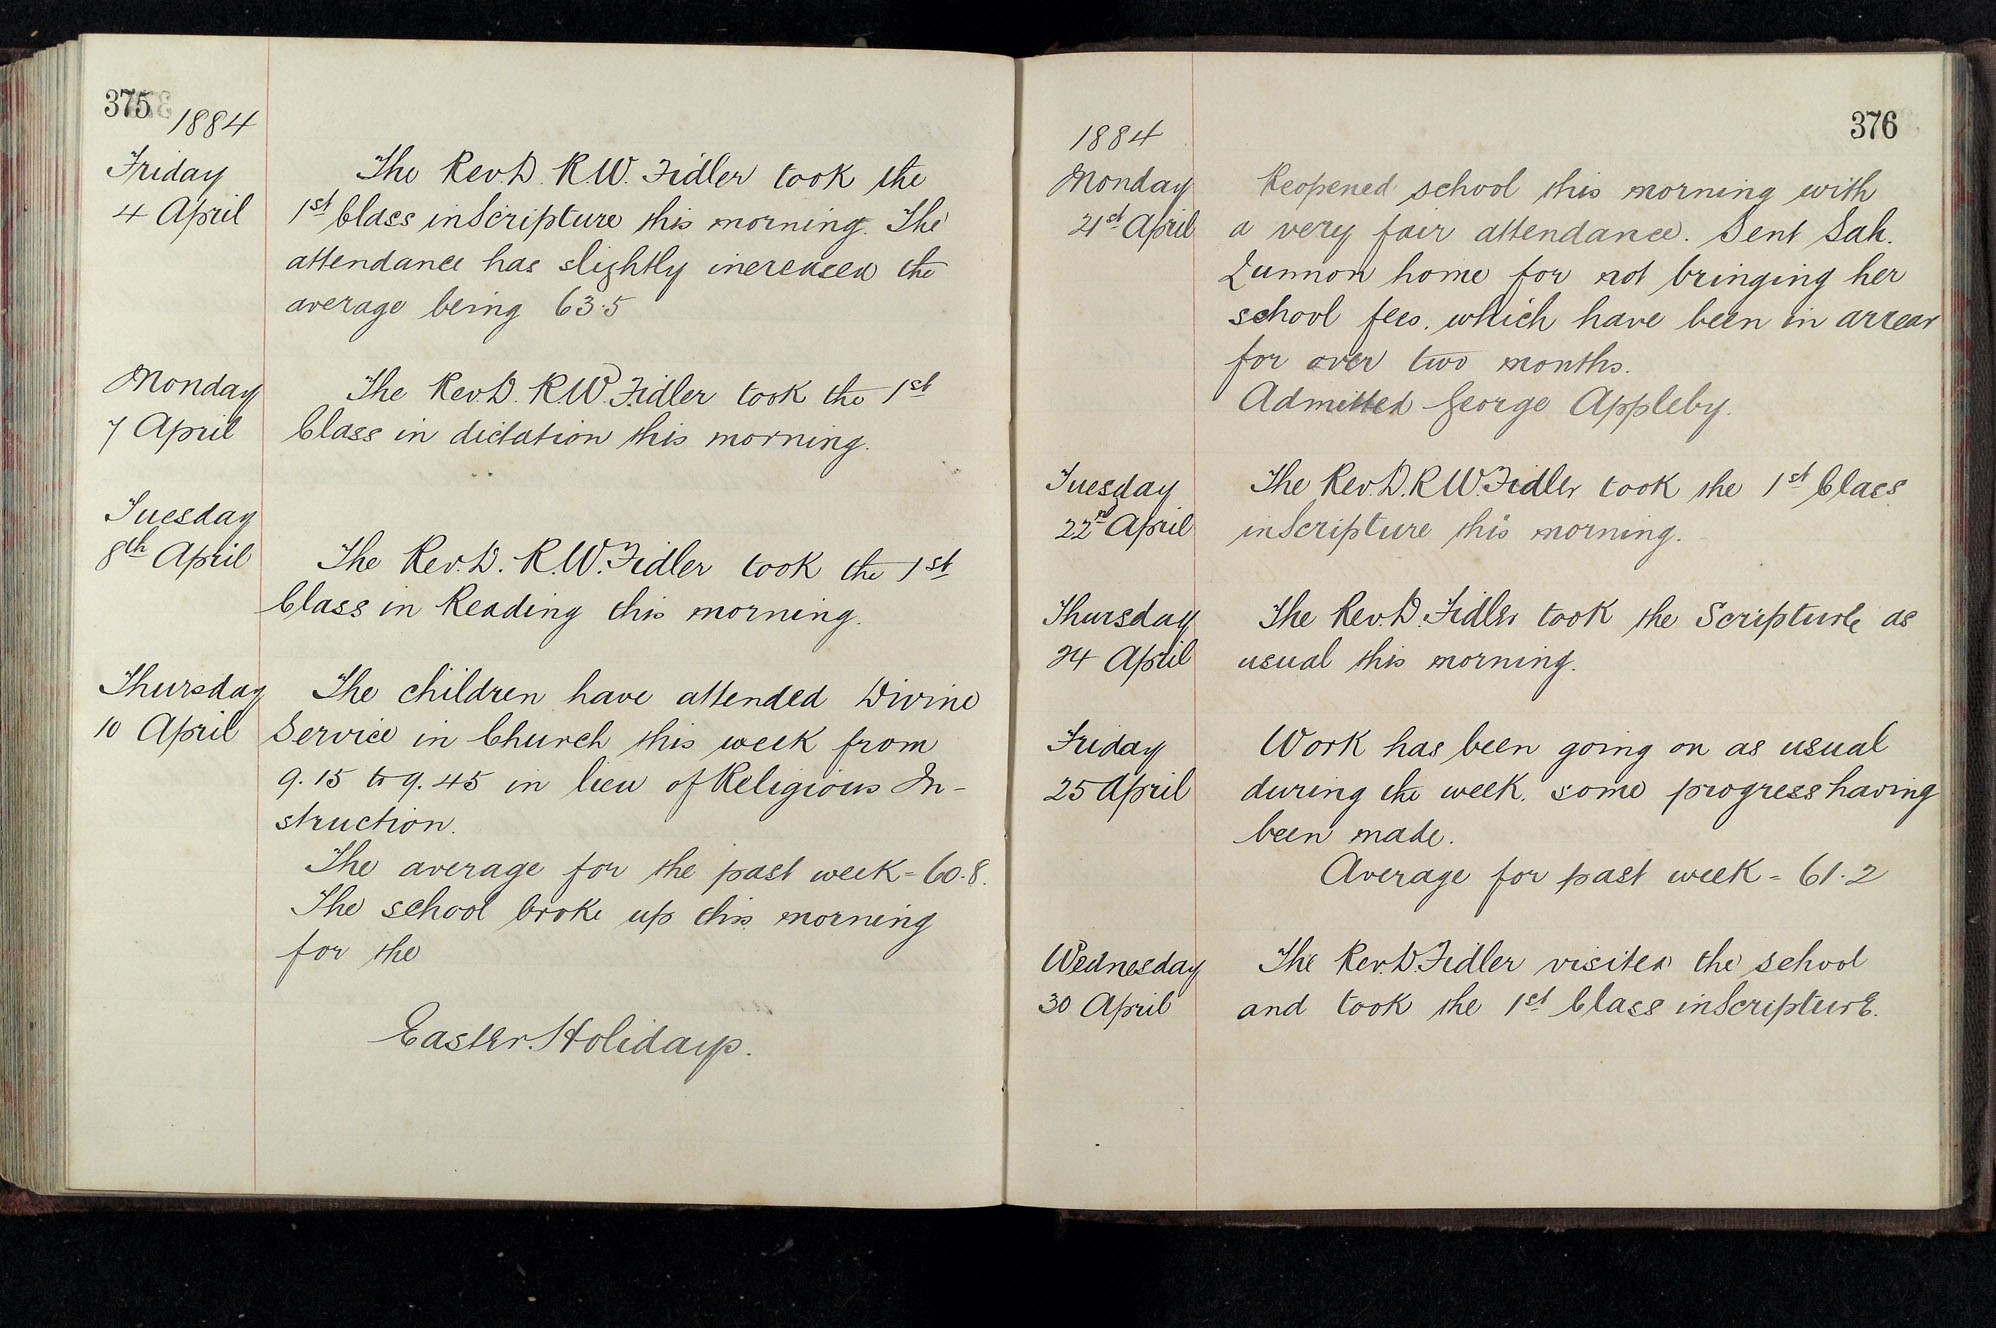 375
1884
Friday
4 April
The Rev.D. R.W. Fidler took the
1st Class in Scripture this morning. The
attendance has slightly increased the
average being 63.5
Monday
7 April
The Rev.D. R.W. Fidler took the 1st
Class in dictation this morning.
Tuesday
8th April
The Rev.D. R.W. Fidler took the 1st
Class in Reading this morning.
Thursday
10 April
The children have attended Divine
Service in Church this week from
9.15 to 9.45 in lieu of Religious In-
struction.
The average for the past week = 60.8.
The school broke up this morning
for the
Easter Holidays.
376
1884
Monday
21st April
Reopened school this morning with
a very fair attendance. Sent Sah.
home for not bringing her
school fees, which have been in arrear
for over two months.
Admitted George Appleby.
Tuesday
22nd April
The Rev.D. R.W. Fidler took the 1st Class
in Scripture this morning.
Thursday
24 April
The Rev.D. Fidler took the Scripture as
usual this morning.
Friday
25 April
Work has been going on as usual
during the week, some progress having
been made.
Average for past week = 61.2
Wednesday
30 April
The Rev.D. Fidler visited the school
and took the 1st Class in Scripture.